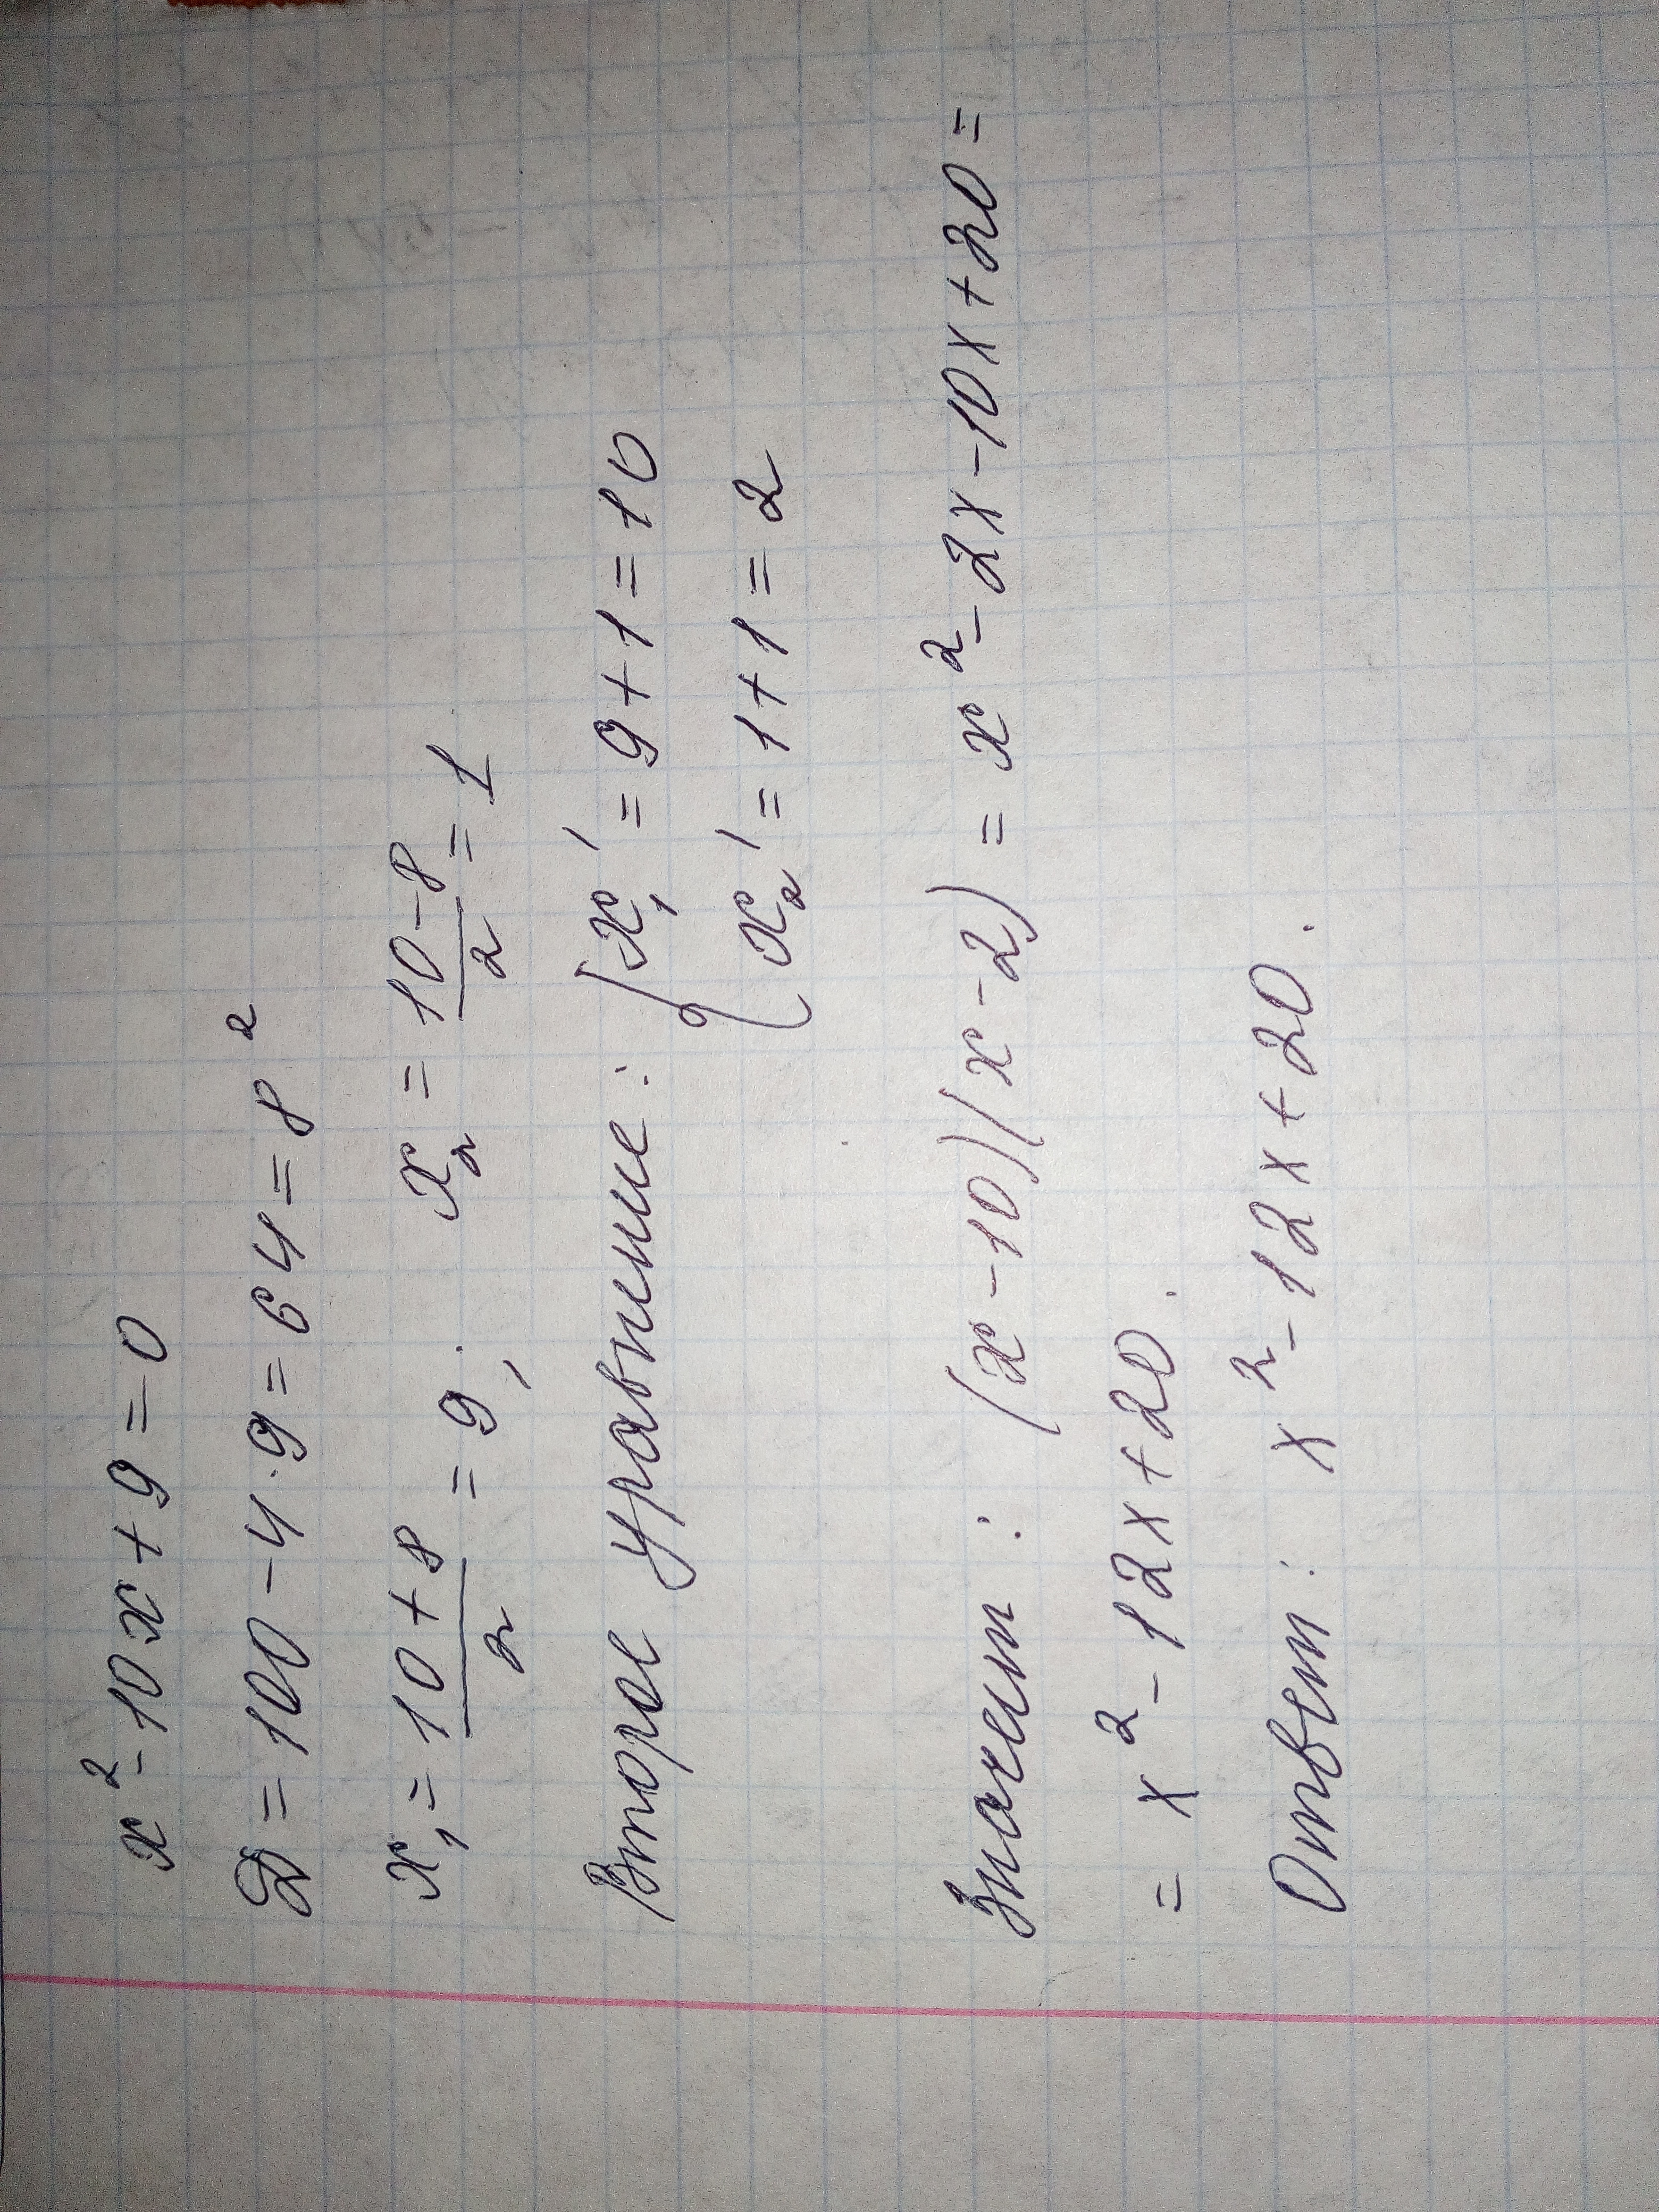 x² - 10x + 9 = 0
D = 100 - 4·9 = 64 = 8²
x₁ = (10 + 8)/2 = 9; x₂ = (10 - 8)/2 = 1
Второе уравнение: { x₁' = 9 + 1 = 10
x₂' = 1 + 1 = 2
Значит: (x - 10)(x - 2) = x² - 2x - 10x + 20 =
= x² - 12x + 20.
Ответ: x² - 12x + 20.